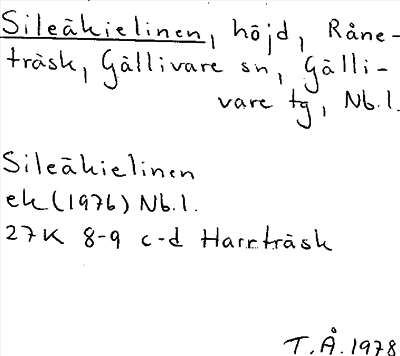 Sileäkielinen, höjd, Råne-
träsk, Gällivare sn, Gälli-
vare tg, Nb.l.
Sileäkielinen
ek (1976) Nb.l.
27K 8-9 c-d Harrträsk
T.Å.1978